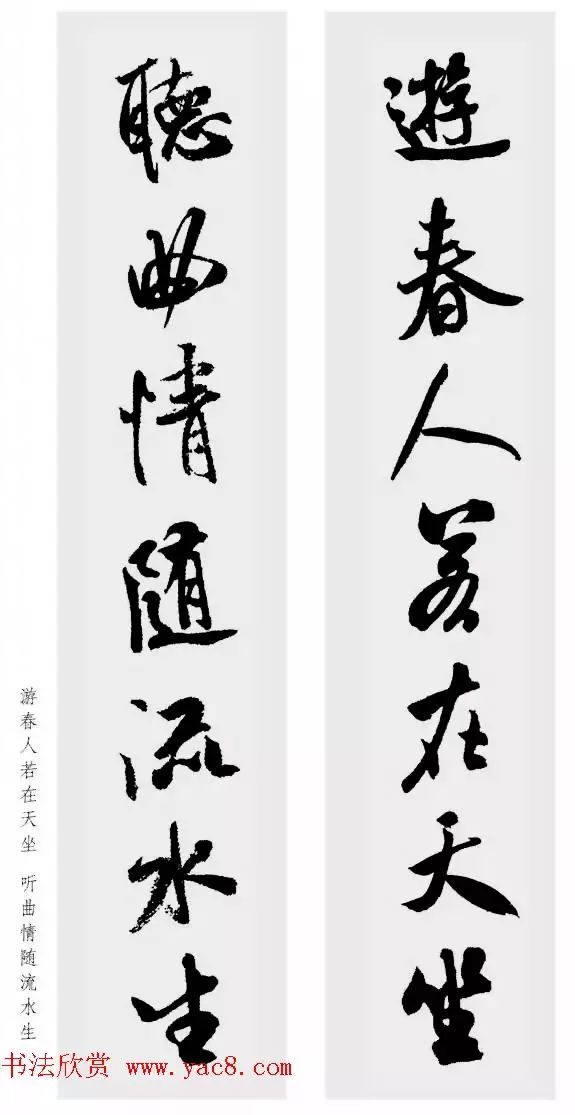 遊春人若在天坐
聽曲情随流水生
游春人若在天坐 听曲情随流水生
书法欣赏 www.yac8.com